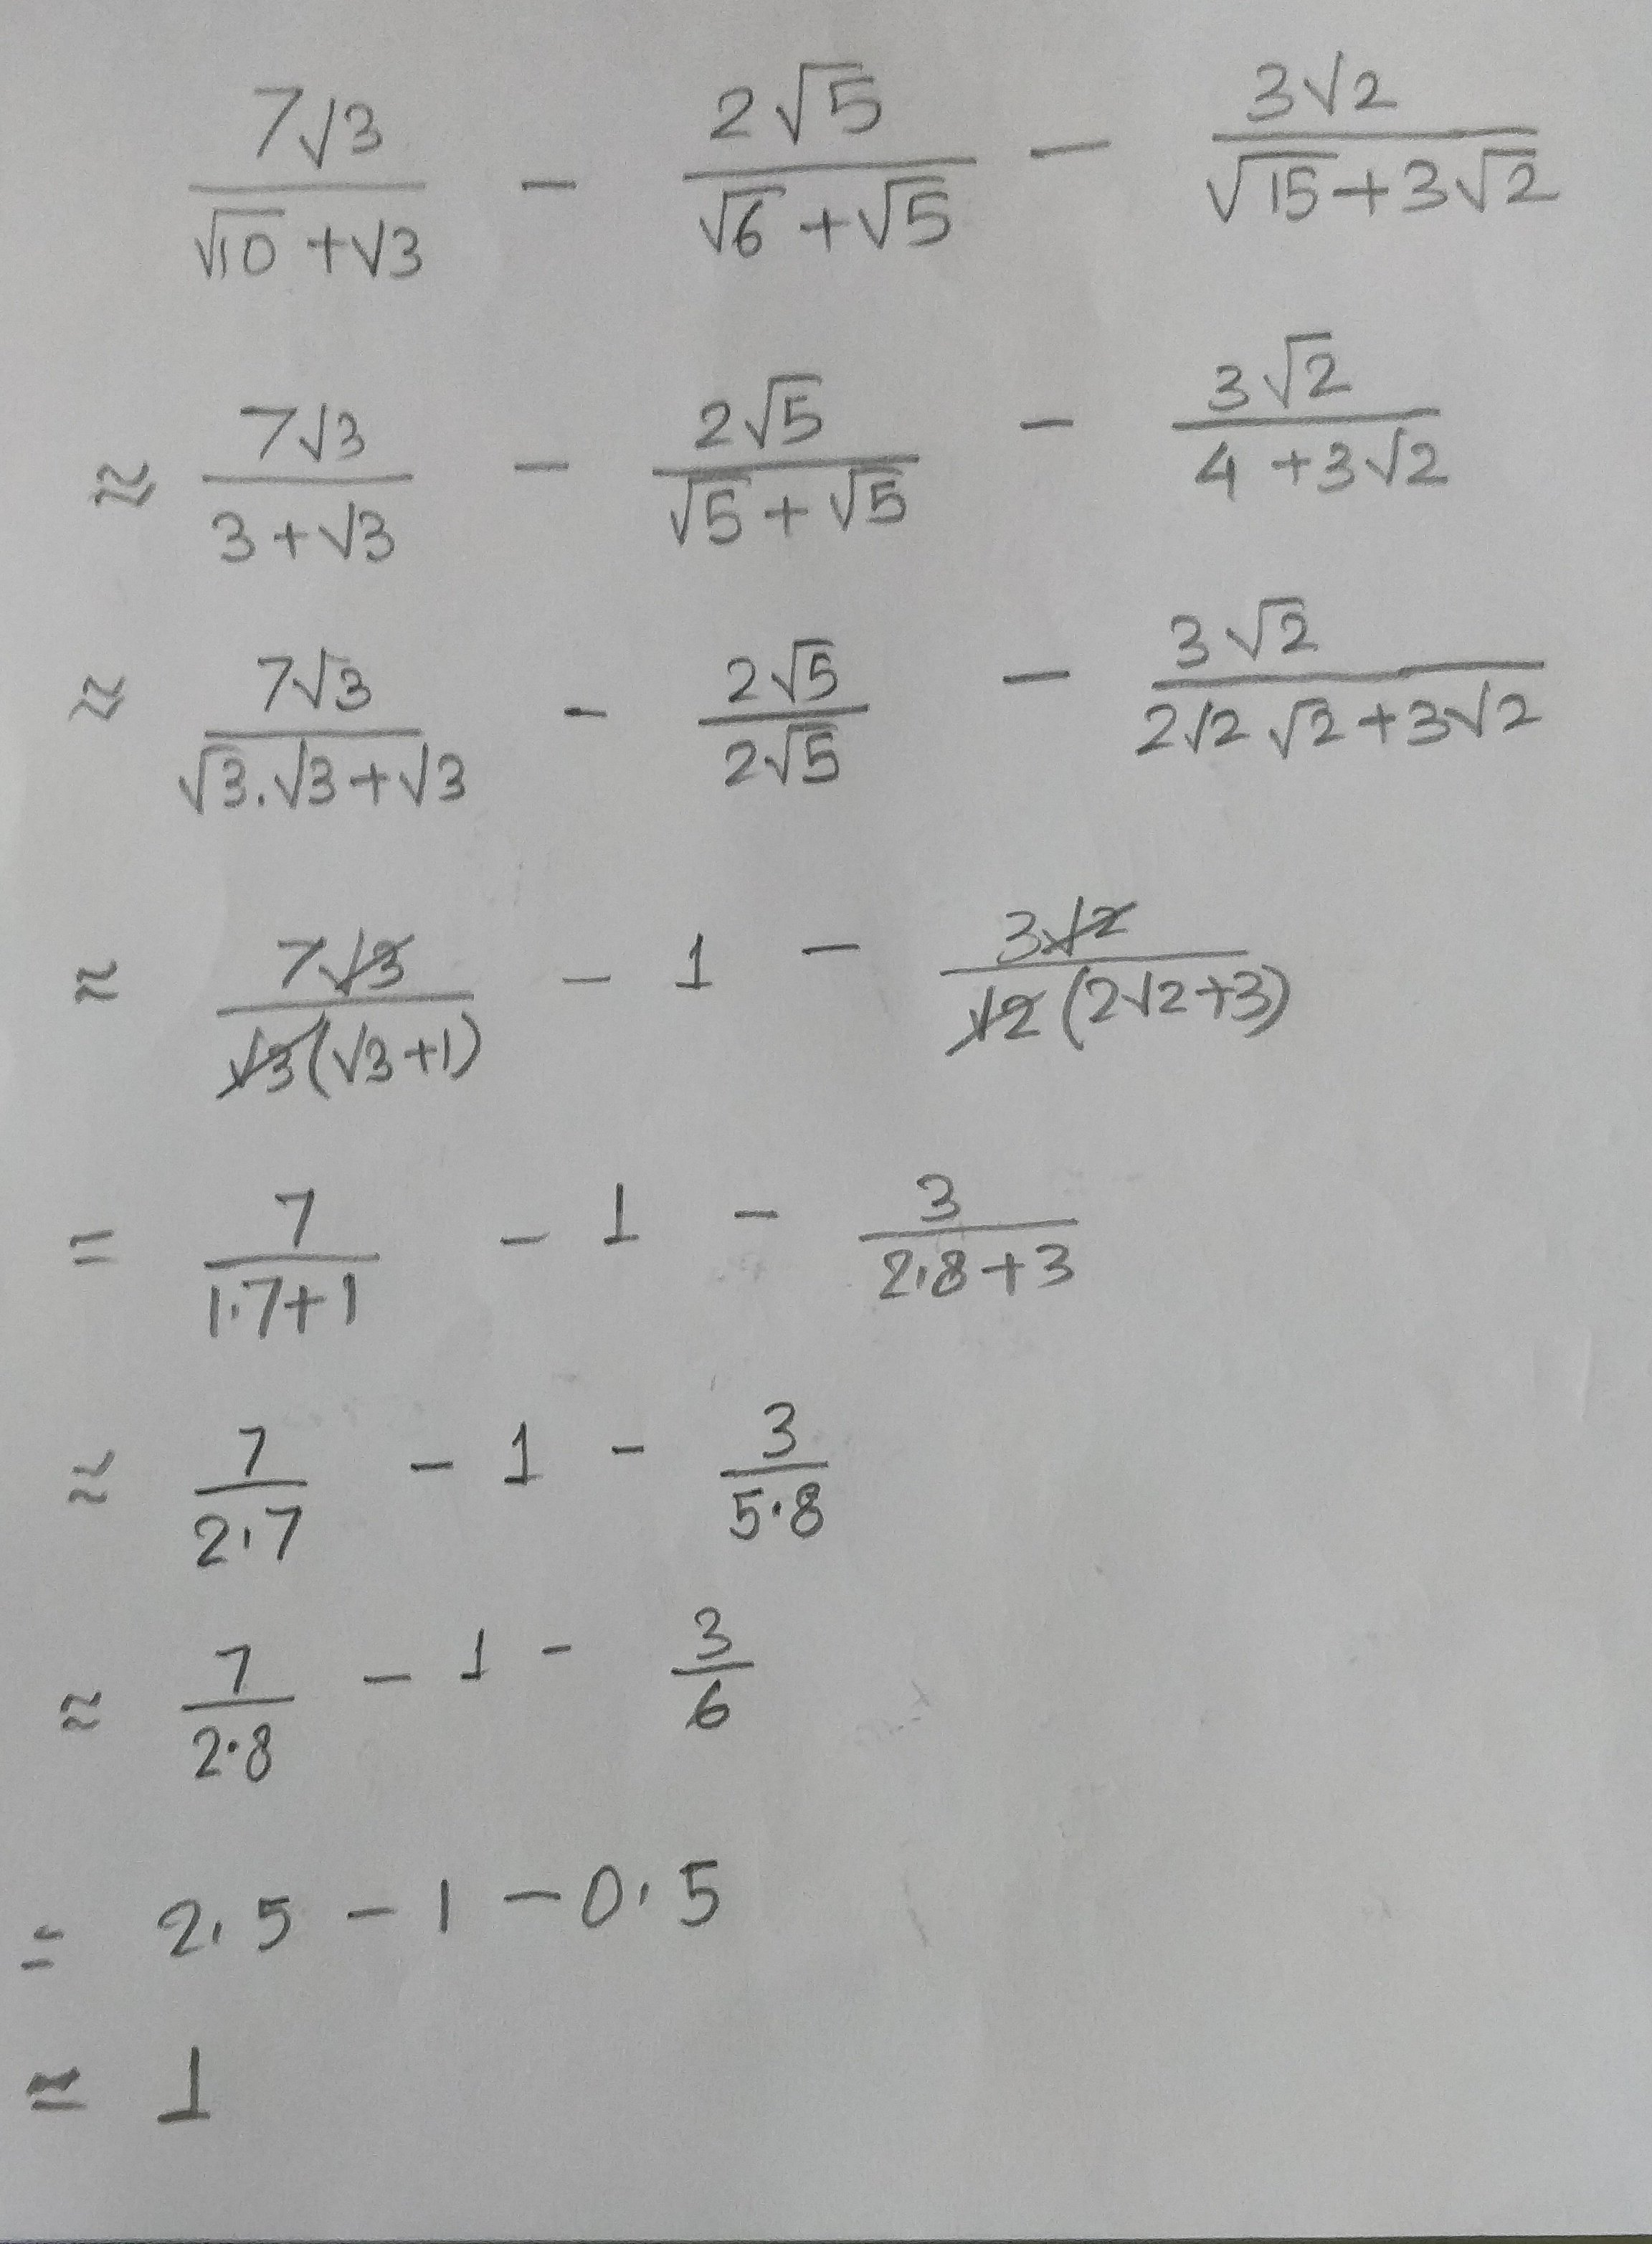 7√3/(√10+√3) - 2√5/(√6+√5) - 3√2/(√15+3√2)
≈ 7√3/(3+√3) - 2√5/(√5+√5) - 3√2/(4+3√2)
≈ 7√3/(√3.√3+√3) - 2√5/(2√5) - 3√2/(2√2 √2+3√2)
≈ 7√3/(√3(√3+1)) - 1 - 3√2/(√2(2√2+3))
= 7/(1.7+1) - 1 - 3/(2.8+3)
≈ 7/2.7 - 1 - 3/5.8
≈ 7/2.8 - 1 - 3/6
= 2.5 - 1 - 0.5
= 1